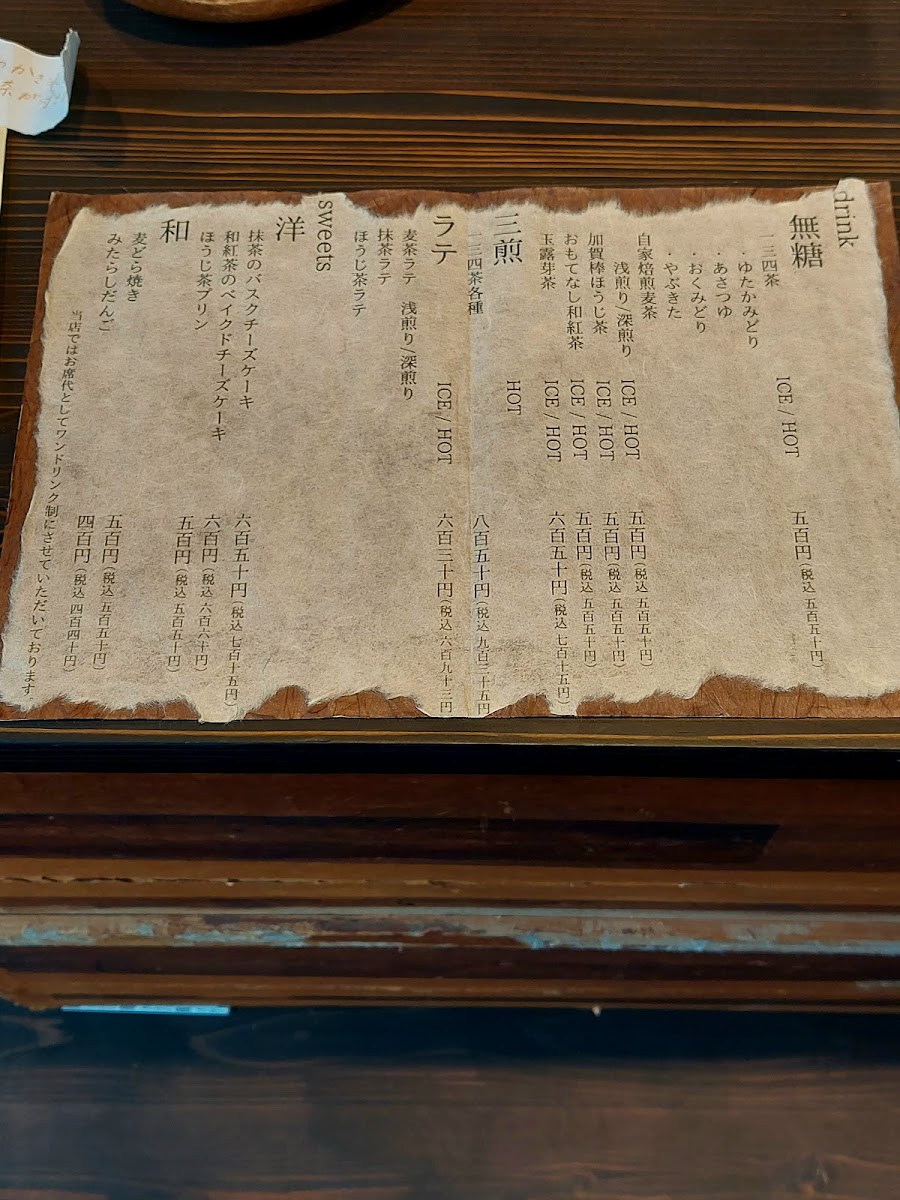 drink
無糖
一三四茶 ICE / HOT 五百円(税込 五百五十円)
・ゆたかみどり
・あさつゆ
・おくみどり
・やぶきた
自家焙煎麦茶
浅煎り/深煎り ICE / HOT 五百円(税込 五百五十円)
加賀棒ほうじ茶 ICE / HOT 五百円(税込 五百五十円)
おもてなし和紅茶 ICE / HOT 五百円(税込 五百五十円)
玉露芽茶 ICE / HOT 六百五十円(税込 七百十五円)
三煎
一三四茶各種 HOT 八百五十円(税込 九百三十五円
ラテ
麦茶ラテ 浅煎り/深煎り ICE / HOT 六百三十円(税込 六百九十三円
抹茶ラテ
ほうじ茶ラテ
sweets
洋
抹茶のバスクチーズケーキ 六百五十円(税込 七百十五円)
和紅茶のベイクドチーズケーキ 六百円(税込 六百六十円)
ほうじ茶プリン 五百円(税込 五百五十円)
和
麦どら焼き 五百円(税込 五百五十円)
みたらしだんご 四百円(税込 四百四十円)
当店ではお席代としてワンドリンク制にさせていただいております。